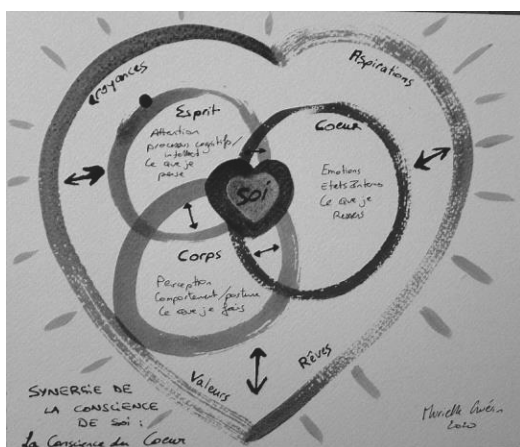 Croyances
Aspirations
Esprit
Attention
processus cognitifs/
intellect
Ce que je
pense
Coeur
Emotions
Ce que je
Ressens
Soi
Corps
Perception
Comportement/posture
Ce que je fais
Valeurs
Rêves
SYNERGIE DE
LA CONSCIENCE
DE SOI :
La Conscience du Coeur
Murielle
2020